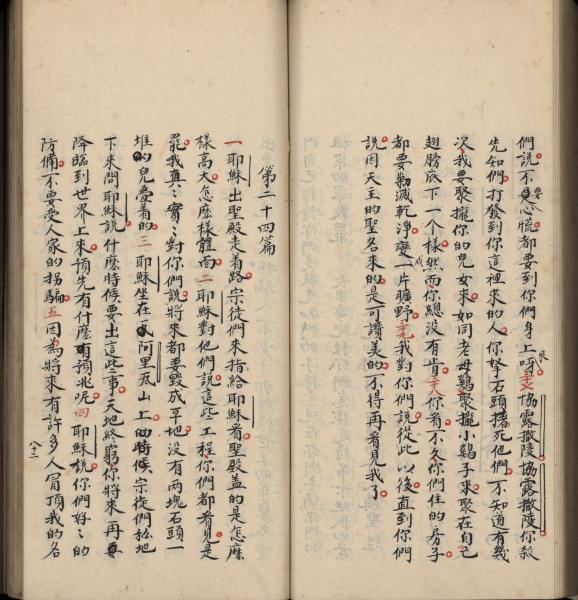 們說不要心慌都要到你們身上呀來協露撒陵協露撒陵你殺
先知們打發到你這裡來的人你拏石頭揸死他們不知道有幾
次我要聚攏你的兒女來如同老母鷄聚攏小鷄子來聚在自己
翅膀底下一個樣然而你總沒有肯你看不久你們住的房子
都要勦滅乾淨變成一片曠野我對你們說從此以後直到你們
說因天主的聖名來的是可讚美的不得再看見我了
第二十四篇
一耶穌出聖殿走着路宗徒們來指給耶穌看聖殿盖的是怎麽
樣高大怎麽樣體面二耶穌對他們說這些工程你們都看見是
罷我真真實實對你們說將來都要毀成平地沒有兩塊石頭一
堆的兒疊着的三耶穌坐在阿里瓦山上的時候宗徒們私地
下來問耶穌說什麽時候要出這些事天地終窮你將來再要
降臨到世界上來預先有什麽預兆呢四耶穌說你們好好的
防備不要受人家的拐騙五因為將來有許多人冒頂我的名
八十二